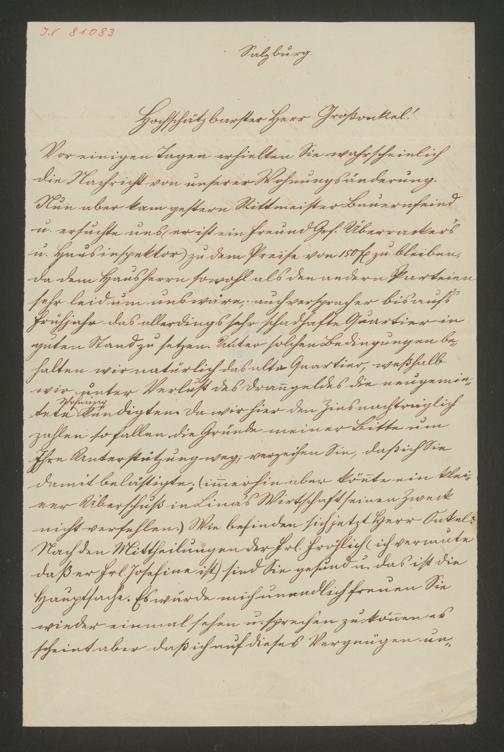 I.N 81083
Salzburg
Hochschätzbarster Herr Großonkel!
Vor einigen Tagen erhielten Sie wahrscheinlich
die Nachricht von unserer Wohnungsänderung.
Nun aber kam gestern Rittmeister Bauernfeind
u. ersuchte uns, er ist ein Freund Grf. Überracker's
u. Hausinspektor) zu dem Preise von 150 f. zu bleiben,
da dem Hausherrn sowohl als den andern Parteien
sehr leid um uns wäre; auch versprach er bis aufs
Frühjahr das allerdings sehr schadhafte Quartier in
guten Stand zu setzen. Unter solchen Bedingungen be,
halten wir natürlich das alte Quartier, weßhalb
wir unter Verlust des Dranngeldes die neugemie,
tete Wohnung kündigten. Da wir hier den Zins nachträglich
zahlen so fallen die Gründe meiner Bitte um
Ihre Unterstützung weg; verzeihen Sie, daß ich Sie
damit belästigte, (immerhin aber könnte ein klei,
ner Überschuß in Lina's Wirtschaft seinen Zweck
nicht verfehlen.) Wie befinden sich jetzt Herr Onkel?
Nach den Mittheilungen der Frl. Fröhlich (ich vermute
daß es Frl. Josefine ist) sind Sie gesund u. das ist die
Hauptsache. Es würde mich unendlich freuen Sie
wieder einmal sehen u. sprechen zu können es
scheint aber daß ich auf dieses Vergnügen un,